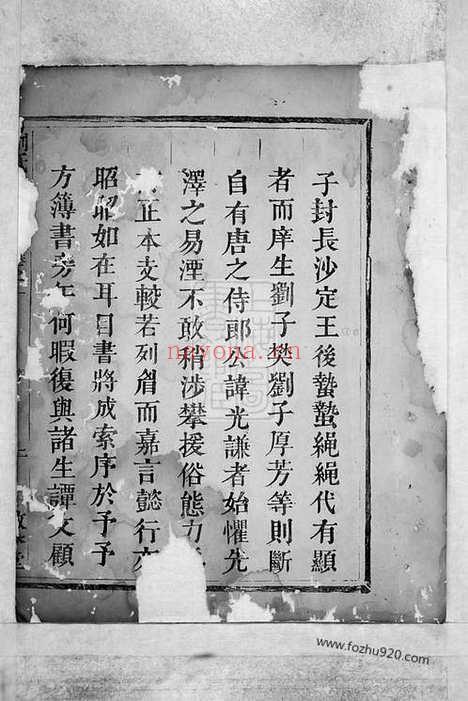 子封長沙定王後蟄蟄繩繩代有顯
者而庠生劉子奕劉子厚芳等則斷
自有唐之侍郎公諱光謙者始懼先
澤之易湮不敢稍涉攀援俗態力
正本支較若列眉而嘉言懿行
昭昭如在耳目書將成索序於予予
方簿書旁午何暇復與諸生譚文顧
nayona.cn
www.fozhu920.com